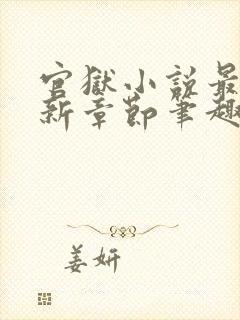 官獄小說最
新章節筆趣
姜妍